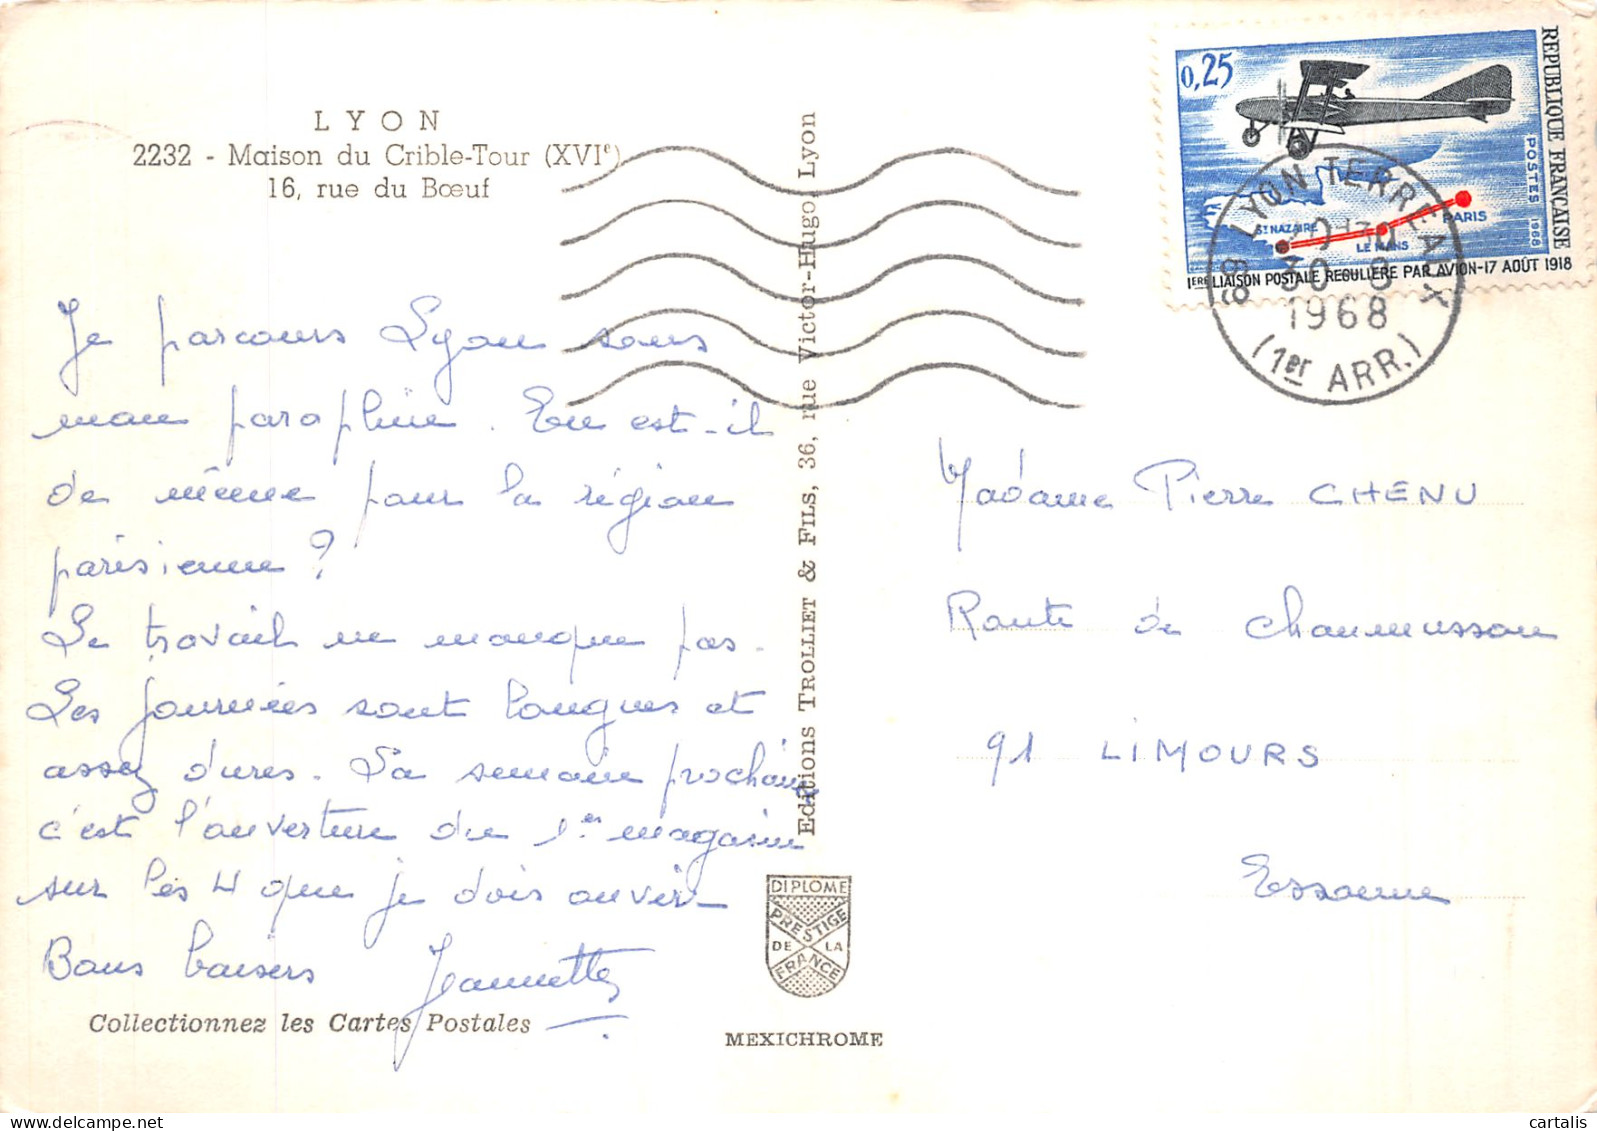 LYON
2232 - Maison du Crible-Tour (XVIe)
16, rue du Bœuf
Je parcours Lyon sous
mon parapluie. En est-il
de même pour la région
parisienne ?
Le travail ne manque pas.
Les journées sont longues et
assez dures. La semaine prochaine
c'est l'ouverture du 1er magasin
sur les 4 que je dois ouvrir
Bons baisers Jeannette
Collectionnez les Cartes Postales
Editions TROLLIET & FILS, 36, rue Victor-Hugo, Lyon
DIPLOME
PRESTIGE
DE LA
FRANCE
MEXICHROME
0,25
REPUBLIQUE FRANÇAISE
POSTES 1968
ST NAZAIRE
LE MANS
PARIS
1ERE LIAISON POSTALE REGULIERE PAR AVION-17 AOÛT 1918
69 LYON TERREAUX
1968
(1er ARR.)
Madame Pierre CHENU
Route de Chaumusson
91 LIMOURS
Essonne
cartalis